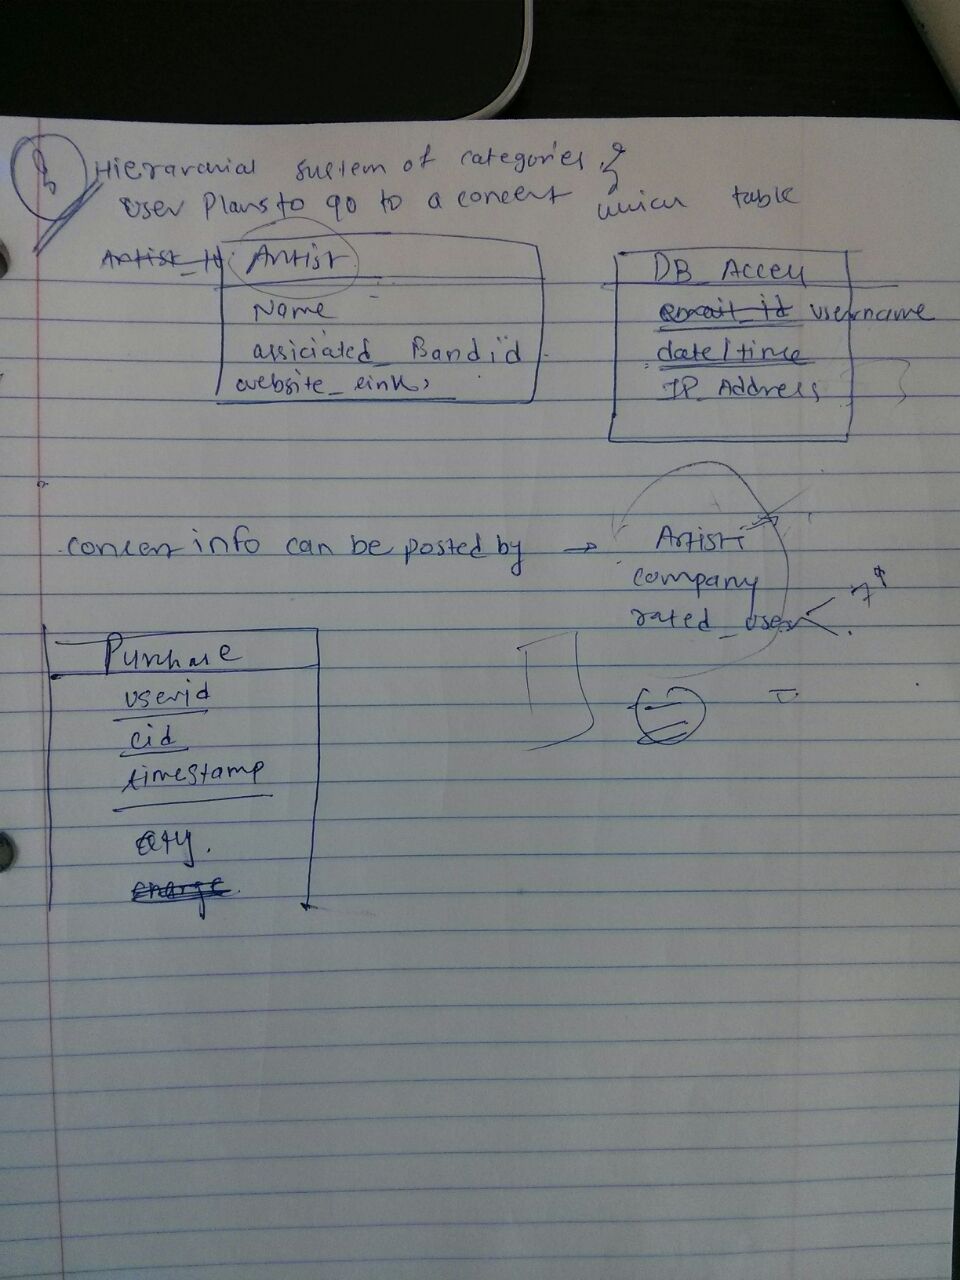 Hierarchial system of categories &
User Plans to go to a concert which table
Artist_id Artist
Name
assiciated_Band id
website_links
DB_Access
email_id username
date/time
IP_Address
concert info can be posted by → Artist
company
rated_user < 7*
Purchase
userid
cid
timestamp
Qty.
charge